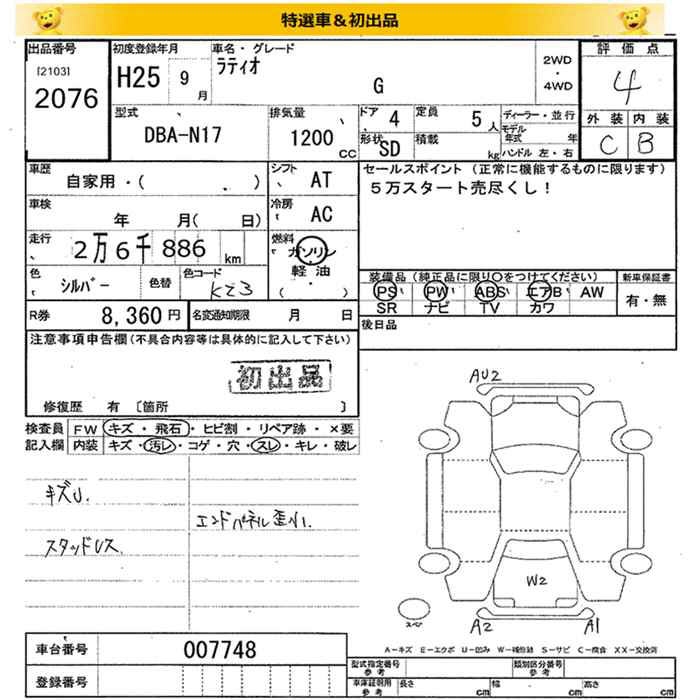 特選車&初出品
出品番号
[2103]
2076
初度登録年月
H25 9月
車名・グレード
ラティオ
G
2WD
・
4WD
評価点
4
外装 内装
C B
型式
DBA-N17
排気量
1200 CC
ドア 4
定員 5人
形状 SD
積載 kg
ディーラー・並行
モデル年式 年
ハンドル 左・右
車歴
自家用・( )
シフト AT
セールスポイント (正常に機能するものに限ります)
5万スタート売尽くし!
車検
年 月( 日)
冷房 AC
走行
2万6千886 km
燃料
ガソリン
軽・油
( )
色
シルバー
色替
色コード
K23
装備品 (純正品に限り○をつけてください)
新車保証書
PS PW ABS エアB AW
SR ナビ TV カワ
有・無
R券 8,360円
名変通知期限 月 日
後日品
注意事項申告欄(不具合内容等は具体的に記入して下さい)
初出品
修復歴 有 〔箇所 〕
検査員 FW キズ・飛石・ヒビ割・リペア跡・×要
記入欄 内装 キズ・汚レ・コゲ・穴・スレ・キレ・破レ
キズU.
エンドパネル歪小.
スタッドレス
AU2
W2
A2
A1
スペ
A-キズ E-エクボ U-凹み W-補修跡 S-サビ C-腐食 XX-交換済
車台番号 007748
型式指定番号
参考
類別区分番号
参考
登録番号
車庫証明用
参考
長さ cm 幅 cm 高さ cm